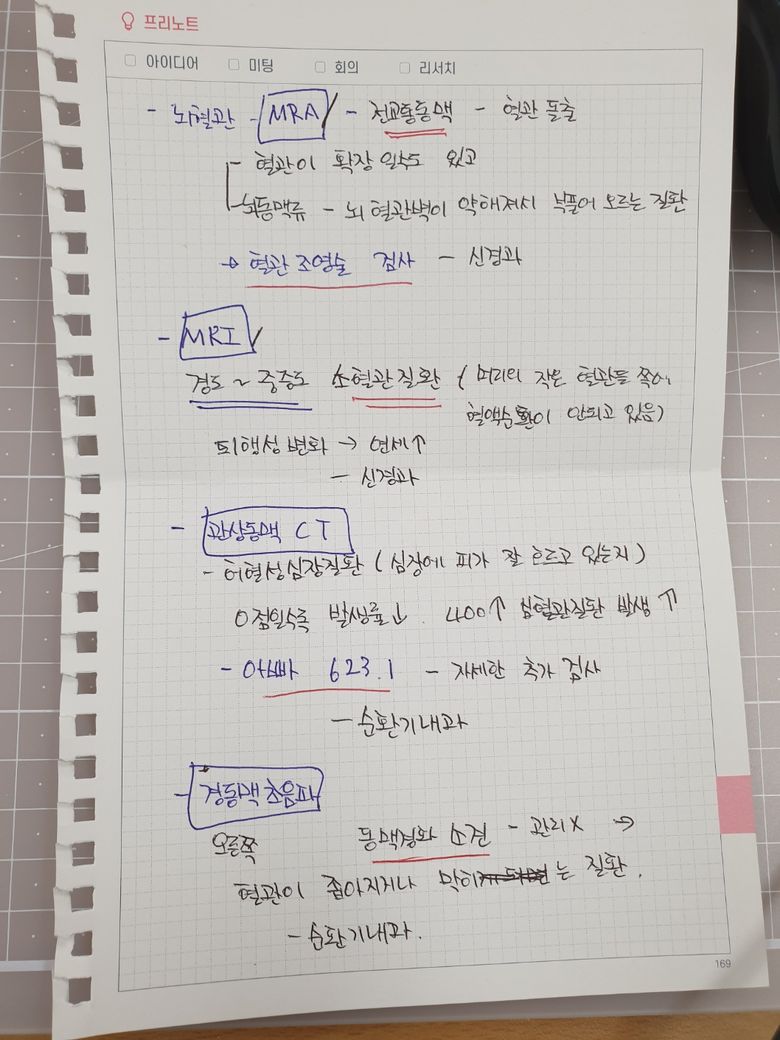 프리노트
아이디어 미팅 회의 리서치
- 뇌혈관 - MRA - 전교통동맥 - 혈관 돌출
- 혈관이 확장 일수도 있고
- 뇌동맥류 - 뇌 혈관벽이 약해져서 부풀어 오르는 질환
→ 혈관 조영술 검사 - 신경과
- MRI
경도 ~ 중증도 소혈관질환 ( 머리의 작은 혈관들 쪽에
혈액순환이 안되고 있음)
퇴행성 변화 → 연세↑
- 신경과
- 관상동맥 CT
- 허혈성심장질환 ( 심장에 피가 잘 흐르고 있는지 )
0점일수록 발생률↓ 400↑ 심혈관질환 발생↑
- 아빠 623.1 - 자세한 추가 검사
- 순환기내과
- 경동맥 초음파
오른쪽 동맥경화 소견 - 관리X →
혈관이 좁아지거나 막히는 질환.
- 순환기내과.
169